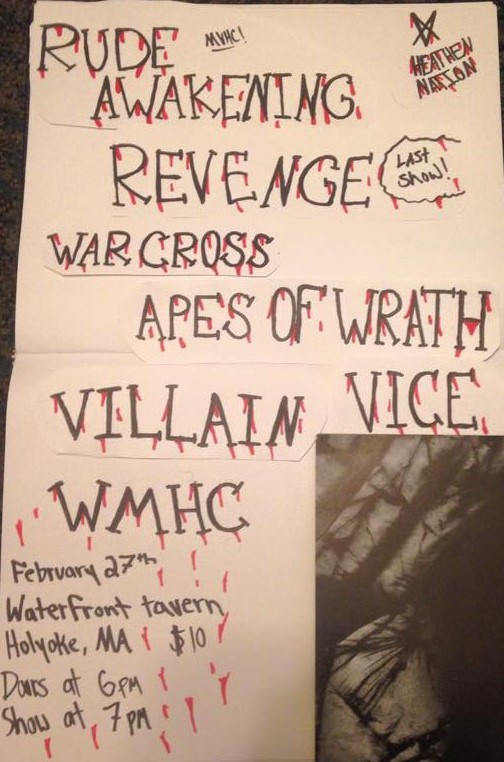 RUDE MVHC!
AWAKENING
HEATHEN
NATION
REVENGE
LAST
SHOW!
WAR CROSS
APES OF WRATH
VILLAIN VICE
WMHC
February 27th
Waterfront tavern
Holyoke, MA $10
Doors at 6PM
Show at 7PM